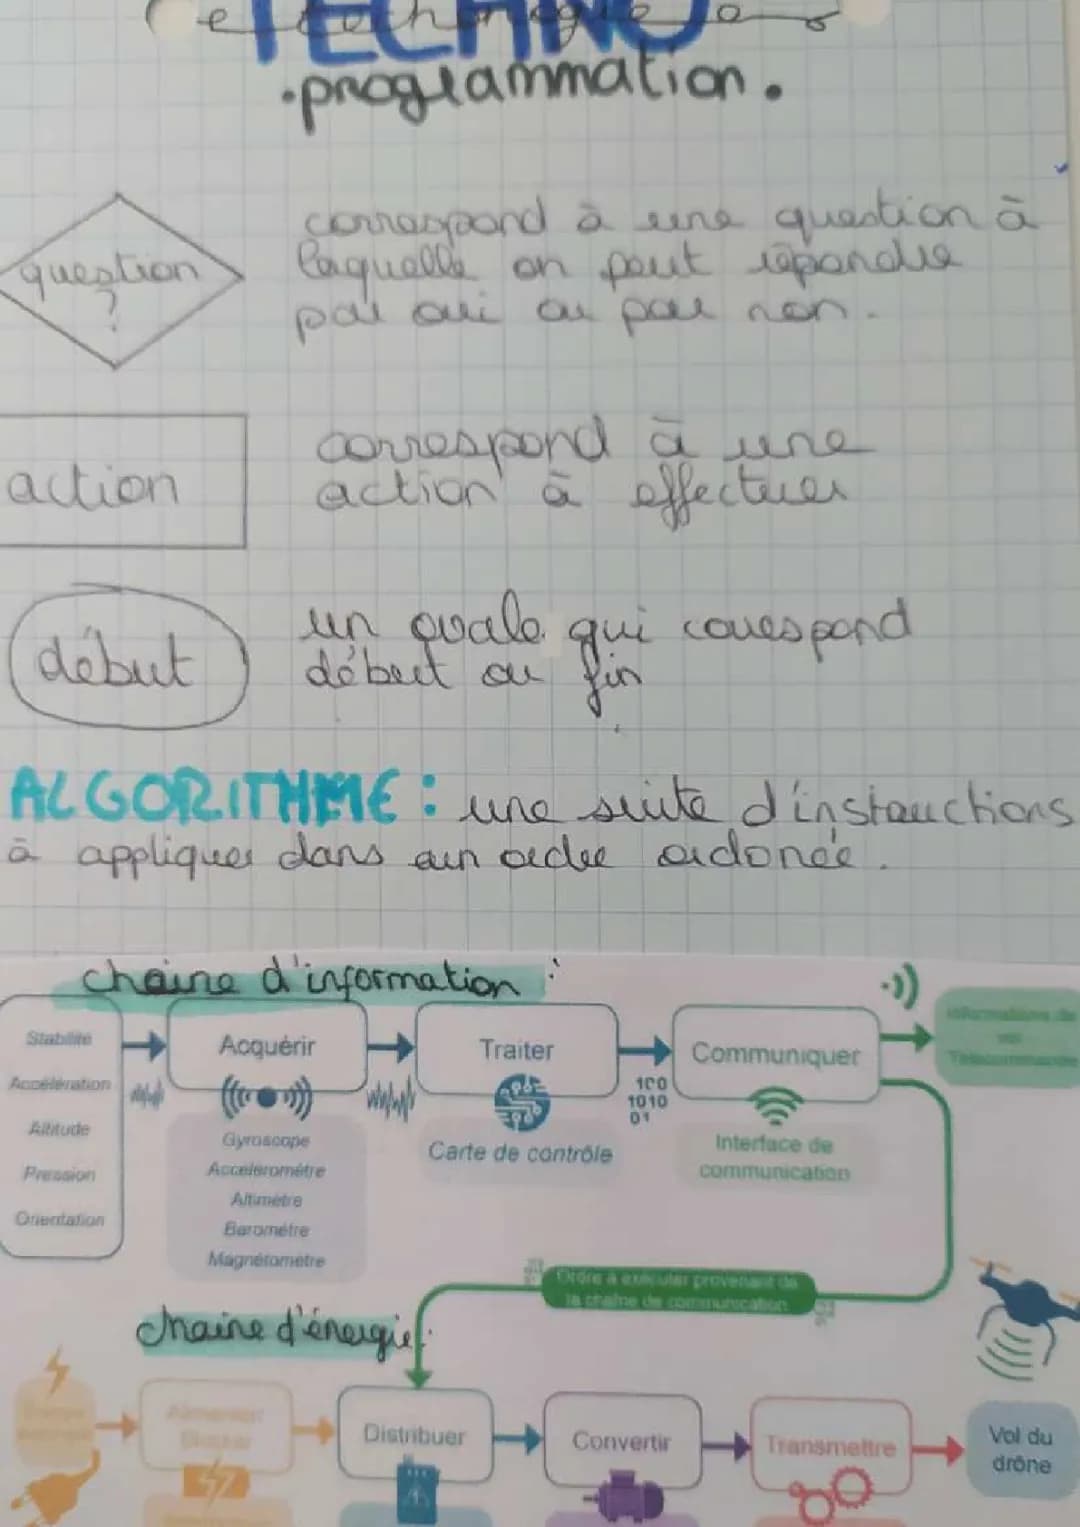 TECHNO
.programmation.
question
?
correspond à une question à
laquelle on peut répondre
par oui ou par non.
action
correspond à une
action à effectuer
début
un ovale qui correspond
début ou fin
ALGORITHME : une suite d'instructions
à appliquer dans un ordre ordonée.
chaine d'information :
Stabilité
Accélération
Altitude
Pression
Orientation
Acquérir
Gyroscope
Acceleromètre
Altimètre
Baromètre
Magnétomètre
Traiter
Carte de contrôle
100
1010
01
Communiquer
Interface de
communication
Informations de
vol
Télécommande
Ordre à exécuter provenant de
la chaîne de communication
chaine d'énergie :
Alimenter
Stocker
Distribuer
Convertir
Transmettre
Vol du
drône